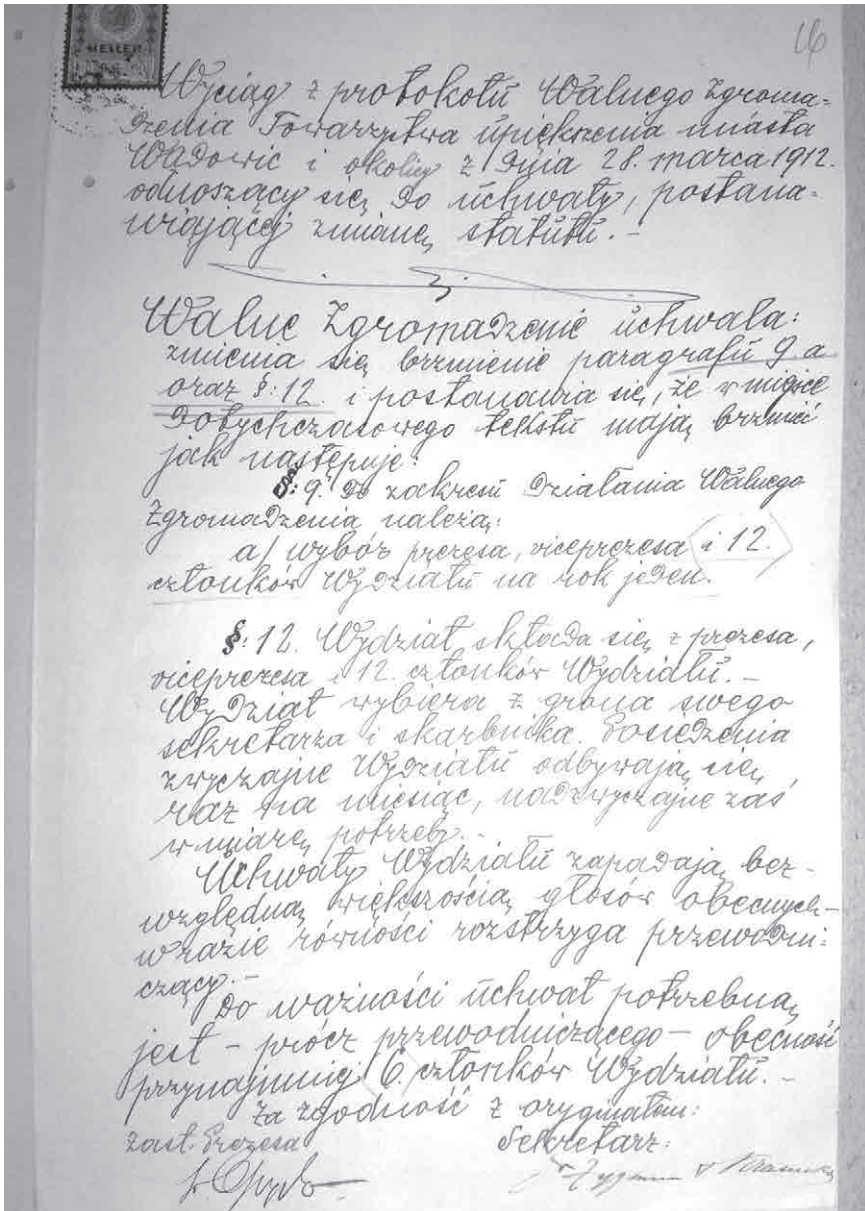 16
HELLER
Wyciąg z protokołu Walnego Zgroma=
dzenia Towarzystwa upiększenia miasta
Wadowic i okolicy z dnia 28. marca 1912.
odnoszący się do uchwały, postana-
wiającej zmianę statutu. -
Walne Zgromadzenie uchwala:
zmienia się brzmienie paragrafu 9. a
oraz §: 12. i postanawia się, że w miejsce
dotychczasowego tekstu mają brzmieć
jak następuje:
§: 9. Do zakresu działania Walnego
Zgromadzenia należą:
a/ wybór prezesa, viceprezesa i 12.
członków Wydziału na rok jeden.
§: 12. Wydział składa się z prezesa,
viceprezesa i 12. członków Wydziału. -
Wydział wybiera z grona swego
sekretarza i skarbnika. Posiedzenia
zwyczajne Wydziału odbywają się
raz na miesiąc, nadzwyczajne zaś
w miarę potrzeby. -
Uchwały Wydziału zapadają bez-
względną większością głosów obecnych -
w razie równości rozstrzyga przewodni:
czący. -
Do ważności uchwał potrzebną
jest - prócz przewodniczącego - obecność
przynajmniej 6. członków Wydziału. -
Za zgodność z oryginałem:
Zast. Prezesa Sekretarz: